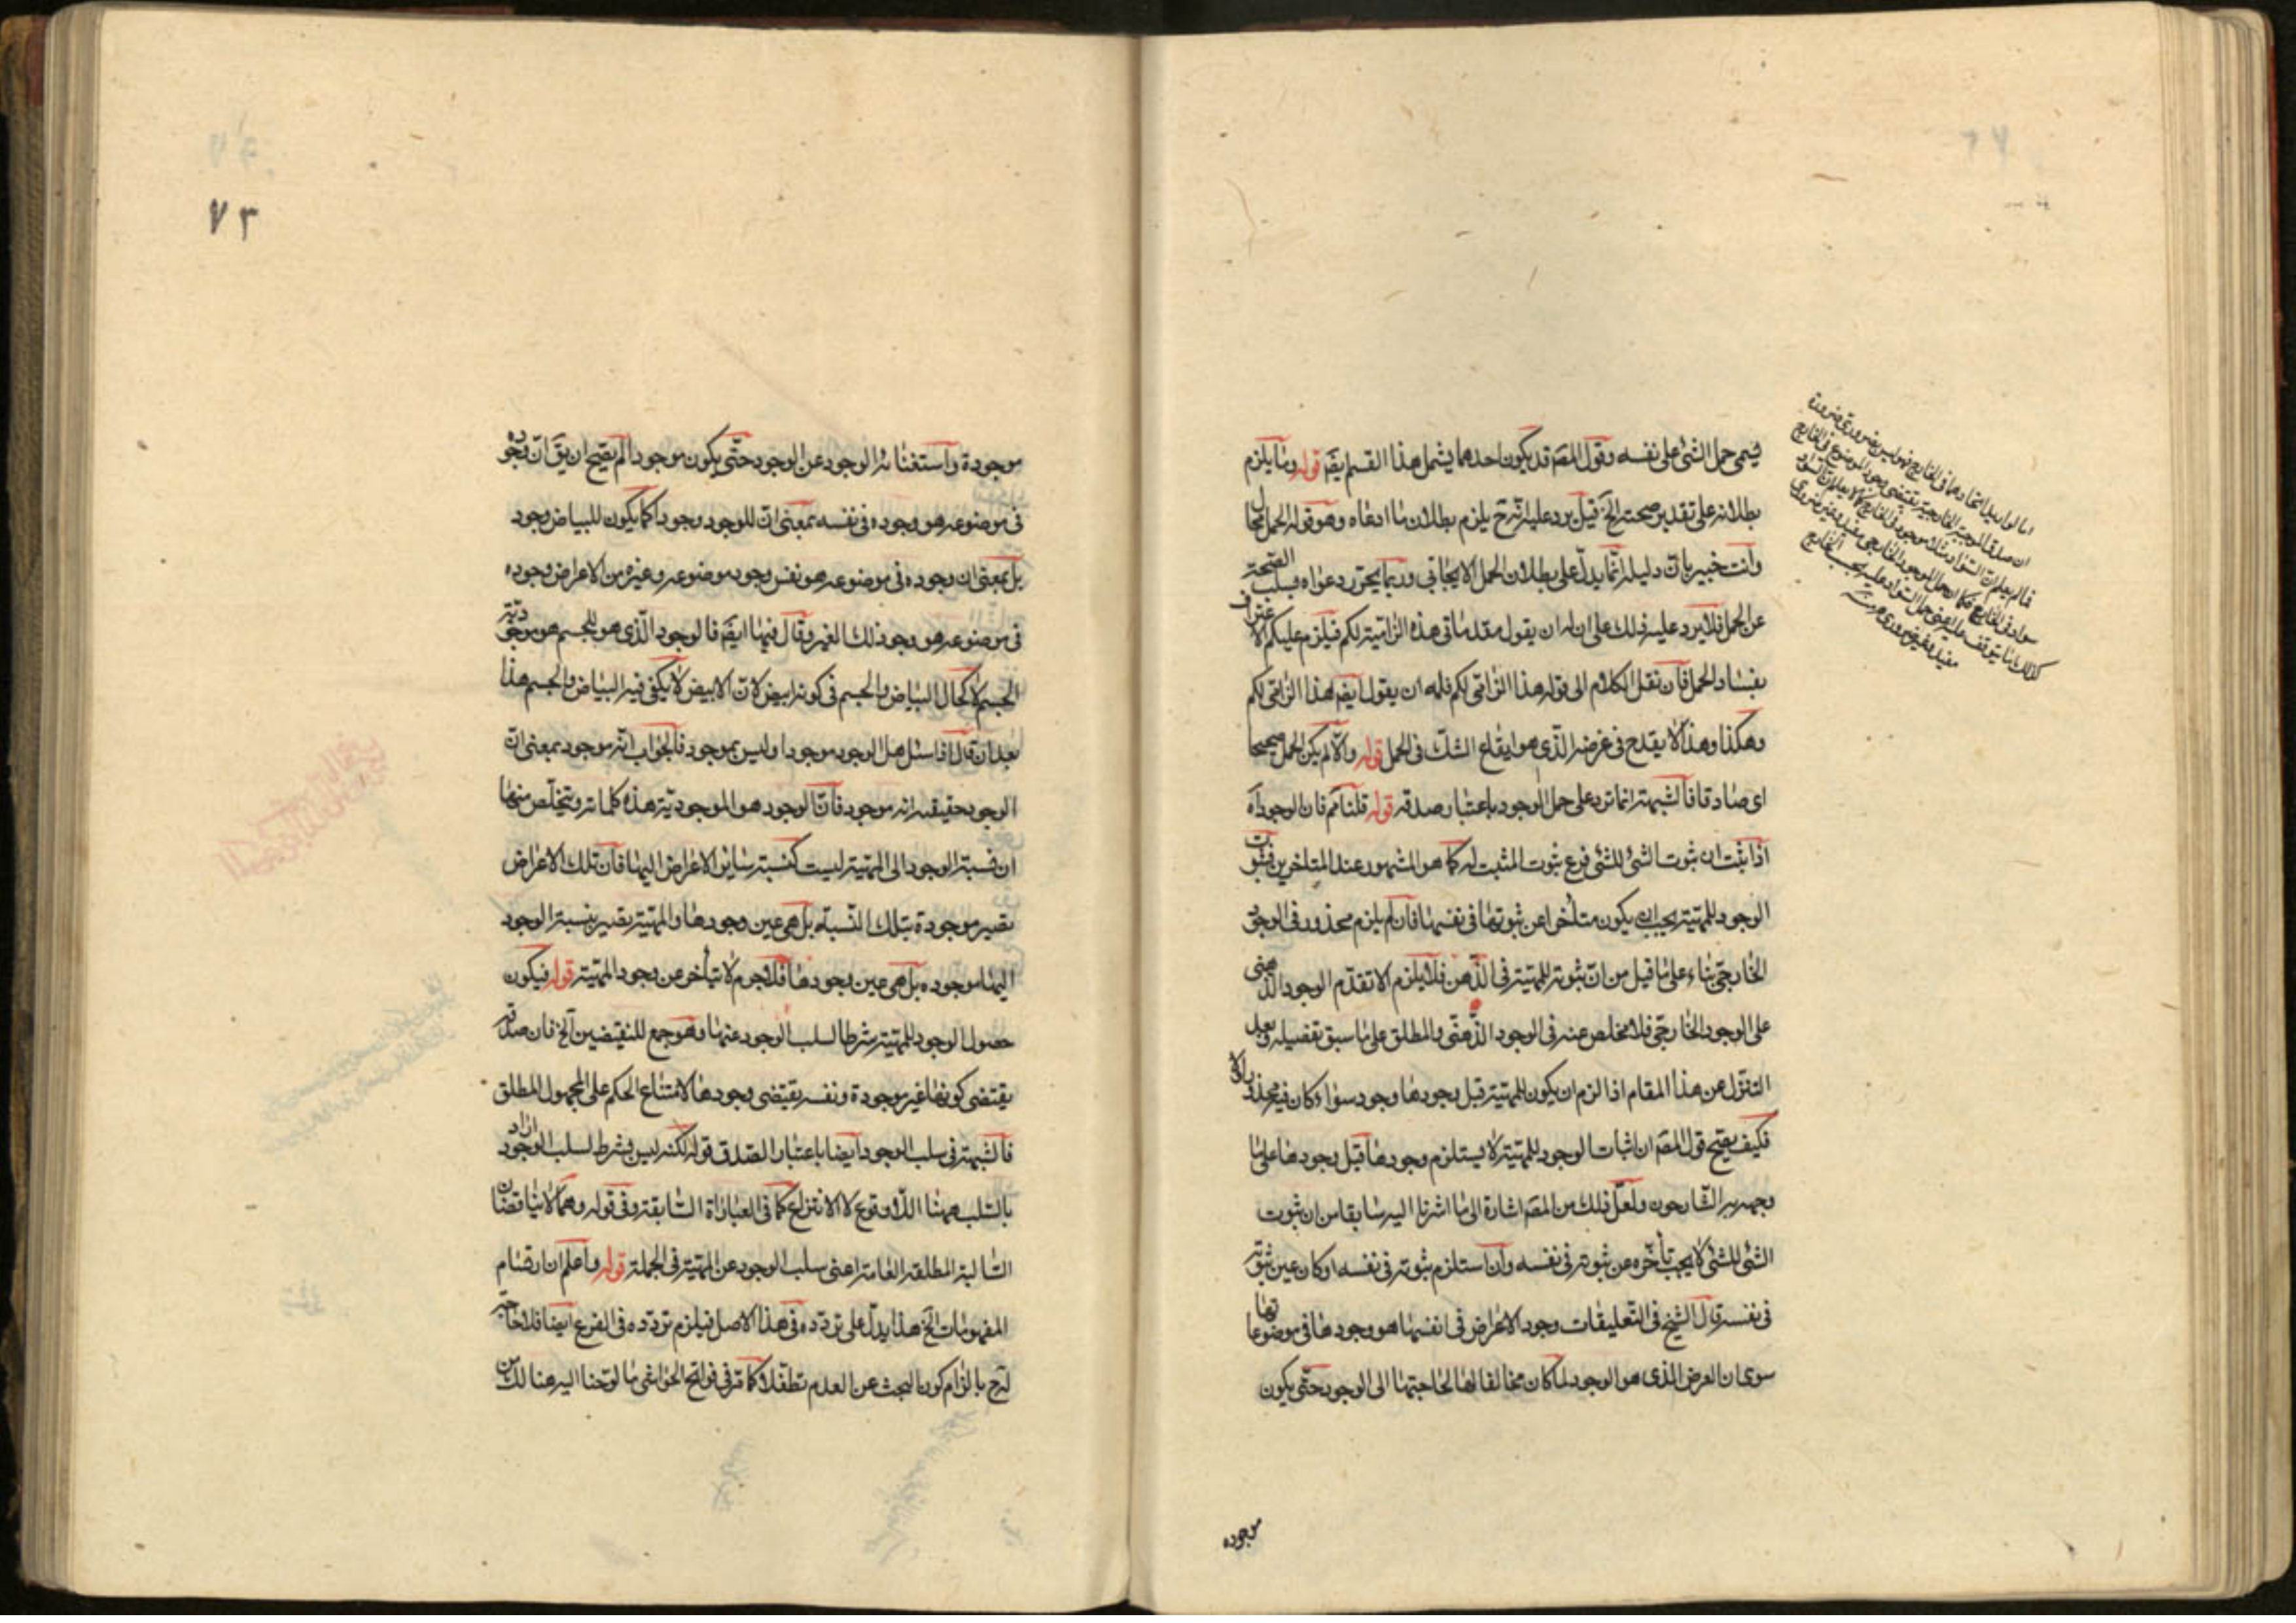 فيمى حمل الشئ على نفسه وقول المصَ قد يكون احدهما يشمل هذا القسم ايضَ قوله وما يلزم
بطلانه على تقدير صحته الخَ قيل يرد عليه انّه ح يلزم بطلان ما ادعاه وهو قوله الحمل محال
وانت خبير بان دليله انّما يدلّ على بطلان الحمل الايجابي وربما يحرّر دعواه بسلب الصحّة
عن الحمل فلا يرد عليه ذلك على ان له ان يقول مقدماتى هذه الزاميّة لكم فيلزم عليكم الاعتراف
بفساد الحمل فان نقل الكلام الى قوله هذا الزامى لكم فله ان يقول ايضَ هذا الزامى لكم
وهكذا وهذا لا يقدح فى غرضه الّذى هو ايقاع الشكّ فى الحمل قوله والّا لم يكن الحمل صحيحا
اى صادقا فالشبهة انما ترد على حمل الوجود باعتبار صدقه قوله قلنا نعم فان الوجود اه
اذا ثبت ان ثبوت الشئ للشئ فرع ثبوت المثبت له كما هو المشهور عند المتاخرين فثبوت
الوجود للمهيّة يجب ان يكون متأخرا عن ثبوتها فى نفسها فان لم يلزم محذور فى الوجود
الخارجىّ بناء على ما قيل من انّ ثبوته للمهيّة فى الذّهن فلا يلزم الا تقدّم الوجود الذهنى
على الوجود الخارجىّ فلا مخلص عنه فى الوجود الذّهنىّ والمطلق على ما سبق تفصيله وبعد
التنزّل عن هذا المقام اذا لزم ان يكون للمهيّة قبل وجودها وجود سواء كان فيه محذور او لا
فكيف يصحّ قول المصَ ان اثبات الوجود للمهيّة لا يستلزم وجودها قبل وجودها على ما
وجهه به الشّارحون ولعلّ ذلك من المصَ اشارة الى ما اشرنا اليه سابقا من ان ثبوت
الشئ للشئ لا يجب تأخّره عن ثبوته فى نفسه وان استلزم ثبوته فى نفسه او كان عين ثبوته
فى نفسه قال الشيخ فى التّعليقات وجود الاعراض فى انفسها هو وجودها فى موضوعاتها
سوى ان العرض الذى هو الوجود لما كان مخالفا لها لحاجتها الى الوجود حتّى يكون
موجوده
اما لو اريد اتحادهما فى الخارج فهو ليس بضرورى ضرورة
ان صدق الموجبة الخارجية يقتضى وجود الموضوع فى الخارج
فما لم يعلم ان السّواد مثلا موجود فى الخارج لا يعلم ان السّواد
سواد فى الخارج فكما ان حمل الموجود الخارجى مفيد وغير ضرورى
٧٣
موجودة واستغناء الوجود عن الوجود حتّى يكون موجودا لم يصّح ان يقَ انّ وجوده
فى موضوعه هو وجوده فى نفسه بمعنى انّ للوجود وجودا كما يكون للبياض وجود
بل بمعنى ان وجوده فى موضوعه هو نفس وجود موضوعه وغيره من الاعراض وجوده
فى موضوعه هو وجود ذلك الغير وقال فيها ايضَ فالوجود الّذى هو للجسم هو موجوديّة
الجسم لا كحال البياض والجسم فى كونه ابيض لانّ الابيض لا يكفى فيه البياض والجسم هذا
بعد ان قال اذا سئل هل الوجود موجود او ليس بموجود فالجواب انّه موجود بمعنى انّ
الوجود حقيقته انه موجود فانّ الوجود هو الموجوديّة هذه كلماته ويتخلّص منها
ان نسبة الوجود الى المهيّة ليست كنسبة ساير الاعراض اليها فان تلك الاعراض
تصير موجودة بتلك النّسبة بل هى عين وجودها والمهيّة تصير بنسبة الوجود
اليها موجوده بل هى عين وجودها فلا جرم لا يتأخر عن وجود المهيّة قوله فيكون
حصول الوجود للمهيّة شرطا لسلب الوجود عنها وهو جمع للنقيضين الخ فان صدقه
يقتضى كونها غير موجودة ونفسه يقتضى وجودها لامتناع الحكم على المجهول المطلق
فالشبهة فى سلب الوجود ايضا باعتبار الصدق قوله لكنه ليس بشرط لسلب الوجود اراد
بالسّلب ههنا اللّاوقوع لا الانتزاع كما فى العبارة السّابقة وفى قوله وهما لا يتناقضان
السّالبة المطلقة العامة اعنى سلب الوجود عن المهيّة فى الجملة قوله واعلم ان ارتسام
المفهومات الخَ هذا يدلّ على تردّده فى هذا الاصل فيلزم تردّده فى الفرع ايضا فلا حاجة
له ح بالزام كون البحث عن العدم تطفّلا كما مرّ فى فواتح الحواشى ما لوّحنا اليه هنالك من